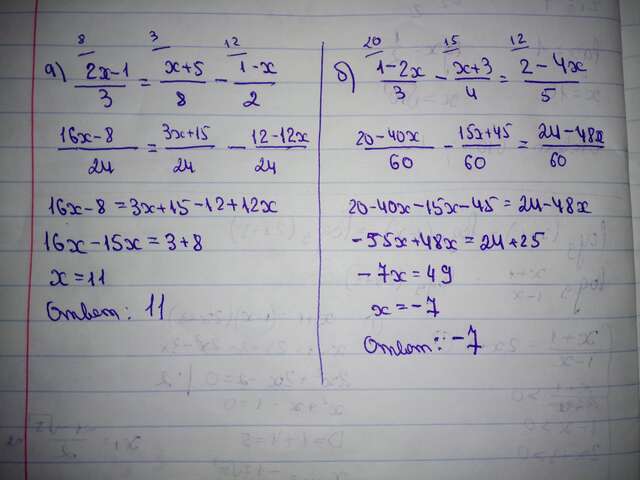 а) 8 3 12
(2x-1)/3 = (x+5)/8 - (1-x)/2
(16x-8)/24 = (3x+15)/24 - (12-12x)/24
16x-8=3x+15-12+12x
16x-15x=3+8
x=11
Ответ: 11
б) 20 15 12
(1-2x)/3 - (x+3)/4 = (2-4x)/5
(20-40x)/60 - (15x+45)/60 = (24-48x)/60
20-40x-15x-45=24-48x
-55x+48x=24+25
-7x=49
x=-7
Ответ: -7